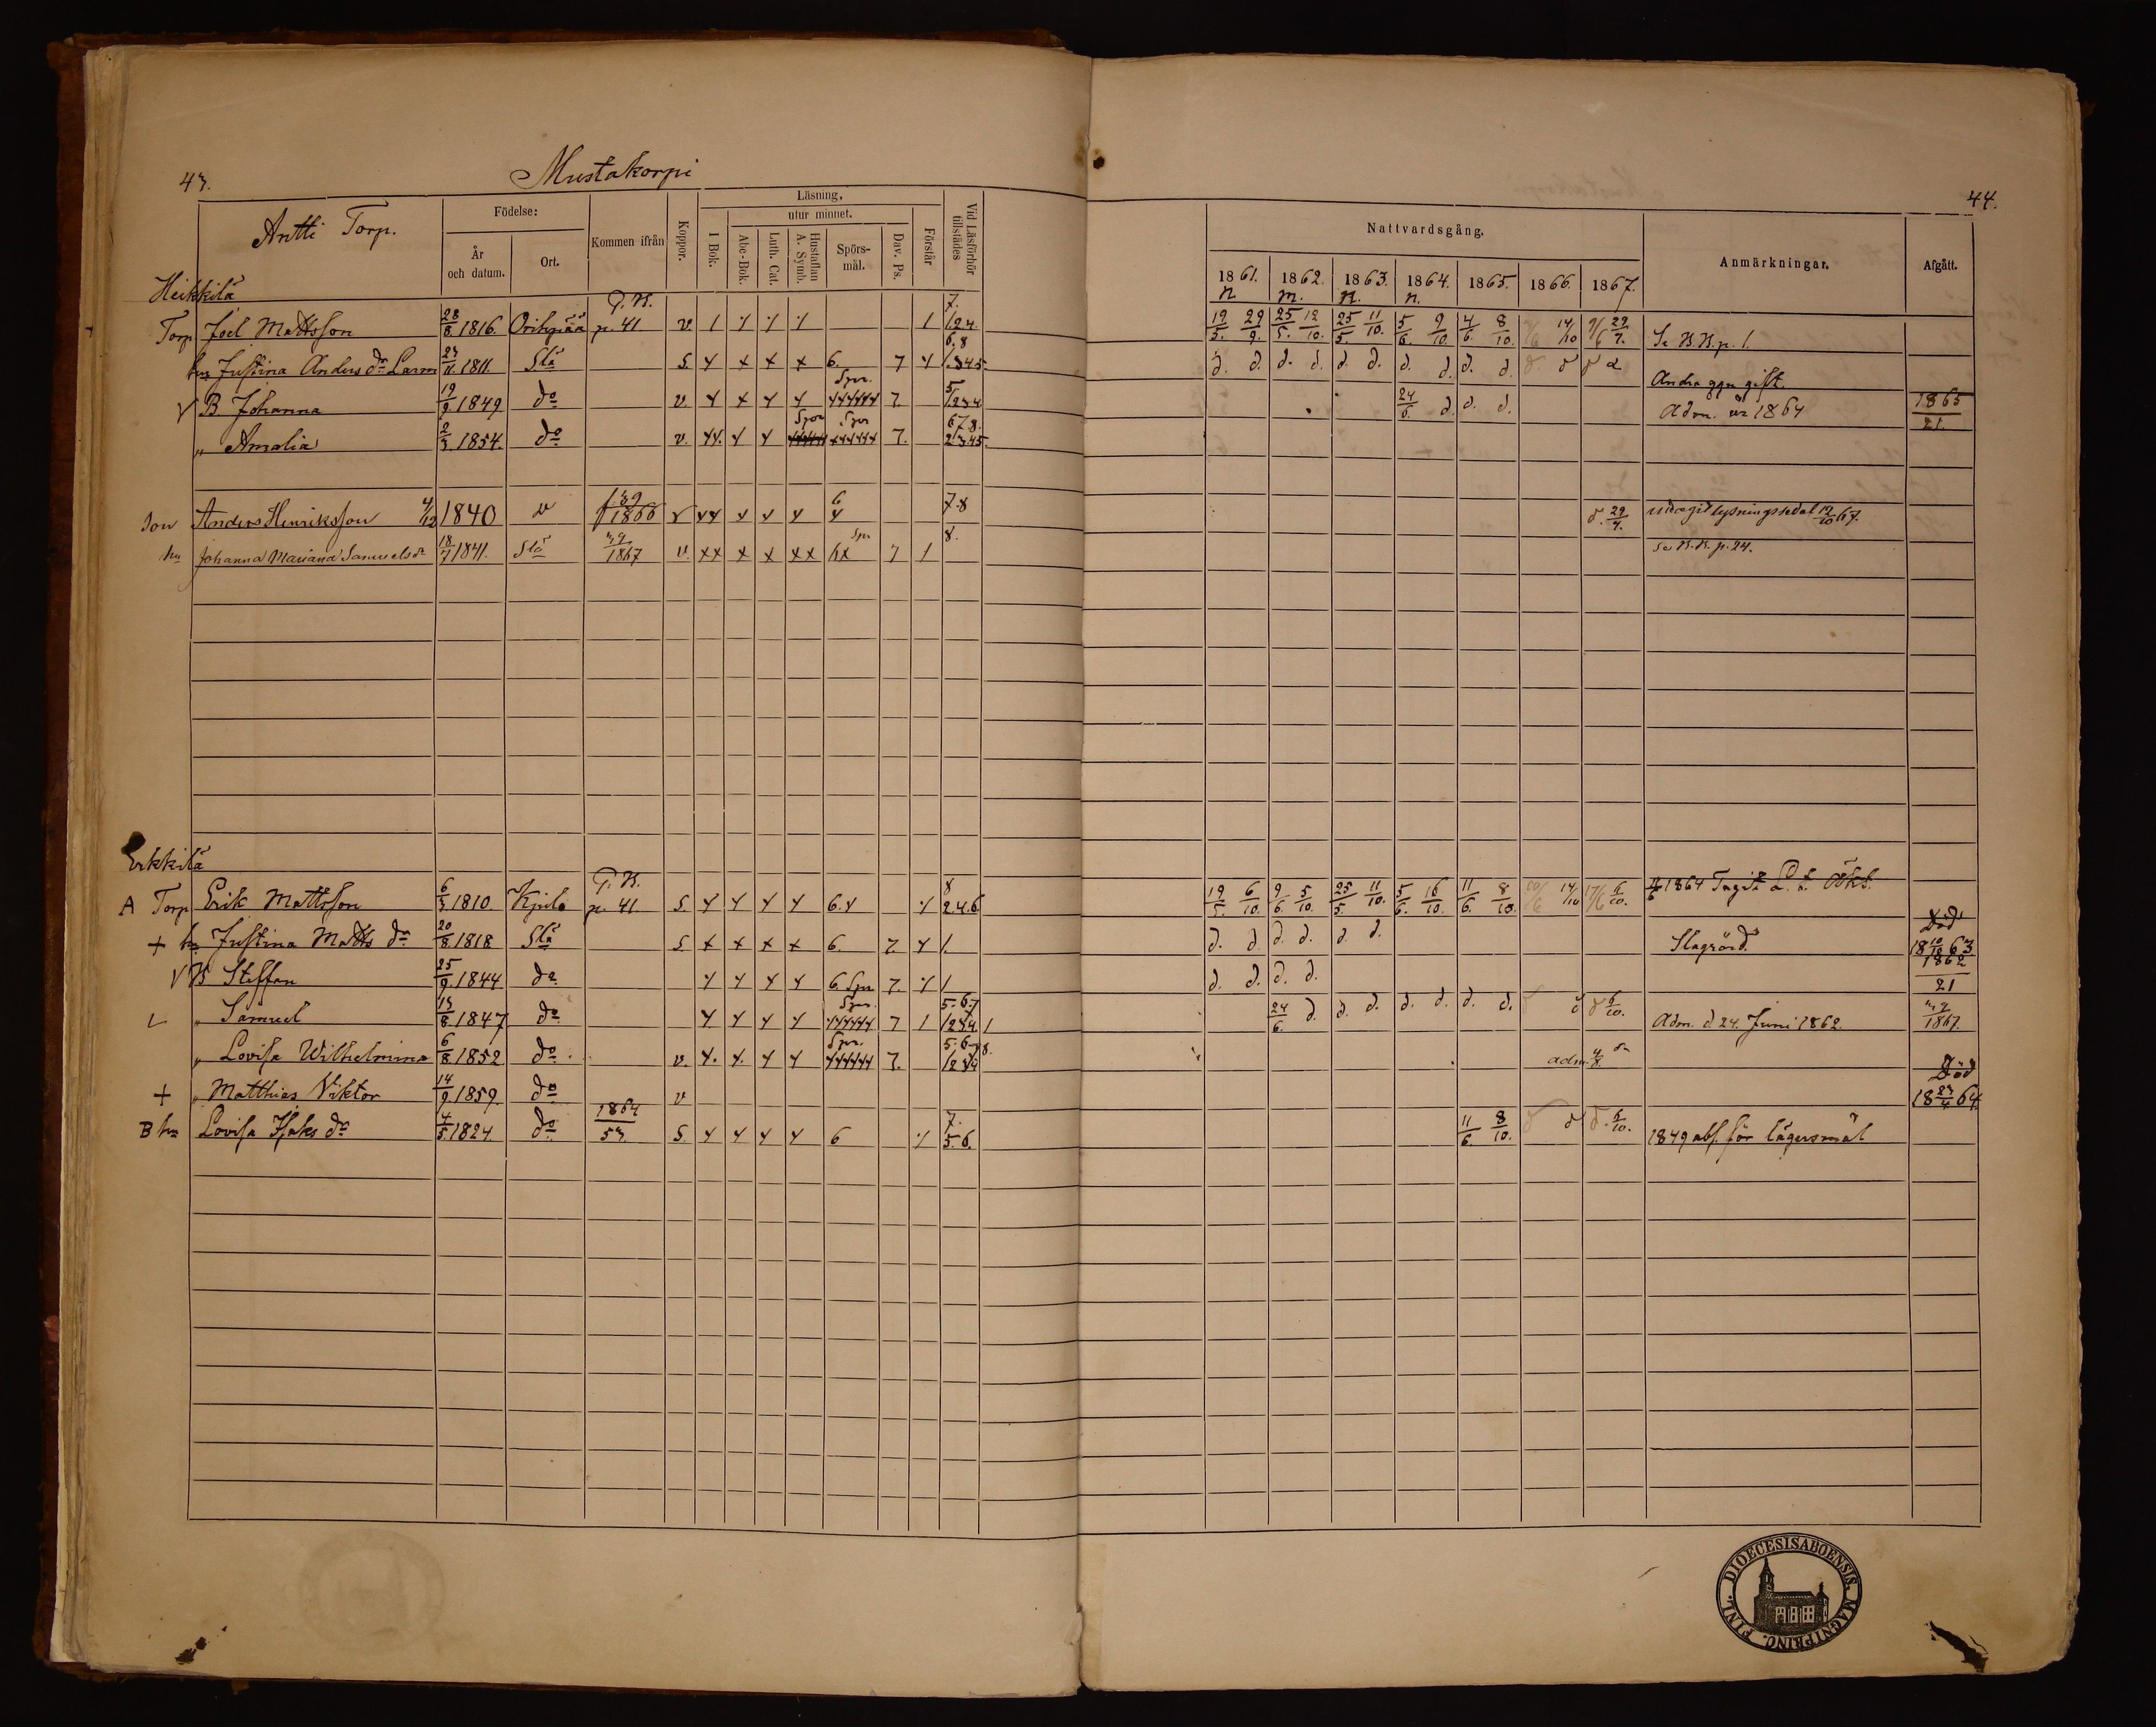 43.
Mustakorpi
Antti Torp.
Födelse:
År och datum.
Ort.
Kommen ifrån
Koppor.
Läsning,
I Bok.
utur minnet.
Abc-Bok.
Luth. Cat.
Hustaflan A. Symb.
Spörs-mål.
Dav. Ps.
Förstår
Vid Läsförhör tillstädes
Heikkilä
Torp Joel Mattsson 28/8 1816. Oripää P. B. p. 41 v. 7. 1.2.4.
hu Justina Anders dr Larm 23/11 1811. Sta S. 6. 7 6.8 1.3.4.5.
B Johanna 19/9 1849 do v. Spr. 7. 5. 1.2.3.4
" Amalia 2/3 1854. do v. Spr Spr 7. 6.7.8. 2.3.4.5.
Son Anders Henriksson 4/12 1840 v 39/1866 6 7.8
hu Johanna Mariana Samuels dr 18/7 1841. Sta 39/1867 v. Spr 7 8.
Erkkilä
A Torp Erik Mattsson 6/3 1810 Kjulo P. B. p. 41. S. 6. 8 2.4.6
+ hu Justina Matts dr 20/8 1818 Sta S. 6. 7 1.
V B Steffan 25/9 1844 do 6. Spr 7. 1
" Samuel 13/8 1847 do Spr. 7 5.6.7 1 2 3 4.
" Lovisa Wilhelmina 6/8 1852 do v. Spr. 7. 5.6.7.8. 1 2 3 4
+ " Matthias Viktor 14/9 1859. do v
B hu Lovisa Isaks dr 4/5 1824. do 1864/53 S. 6 7. 5.6.
44.
Nattvardsgång.
Anmärkningar.
Afgått.
1861. 1862. 1863. 1864. 1865. 1866. 1867.
n m. n. n.
19/5. 29/9. 25/5. 12/10. 25/5. 11/10. 5/6. 9/10. 4/6. 8/10. 14/10 9/6 29/7. Se B. B. p. 1.
d. d. d. d. d. d. d. d. d. d. d d d d Andra ggn gift.
24/6. d. d. d. Adm. år 1864 1865/21.
d. 29/7. uttagit lysningssedel 12/10 67.
Se B. B. p. 24.
19/5. 6/10. 9/6. 5/10. 25/5. 11/10. 5/6. 16/10. 11/6. 8/10. 14/10 17/6 6/10. 1864 Tagit
d. d. d. d. d. d. Slagrörd. Död 18 10/12 63
d. d. d. d. 1862/21
24/6. d. d. d. d. d. d. d. d d 6/10. Adm. d 24. Juni 1862. 39/1867.
adm. 4/8
Död 18 23/4 64.
11/6. 8/10. d d d. 6/10. 1849 abs. för lägersmål
DIOECESIS ABOENSIS. MAGNI PRINC. FINL.